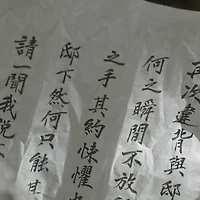 再次違背與邸
何之瞬間不放
之手其約悚懼
邸下然何只能其
請一聞我説